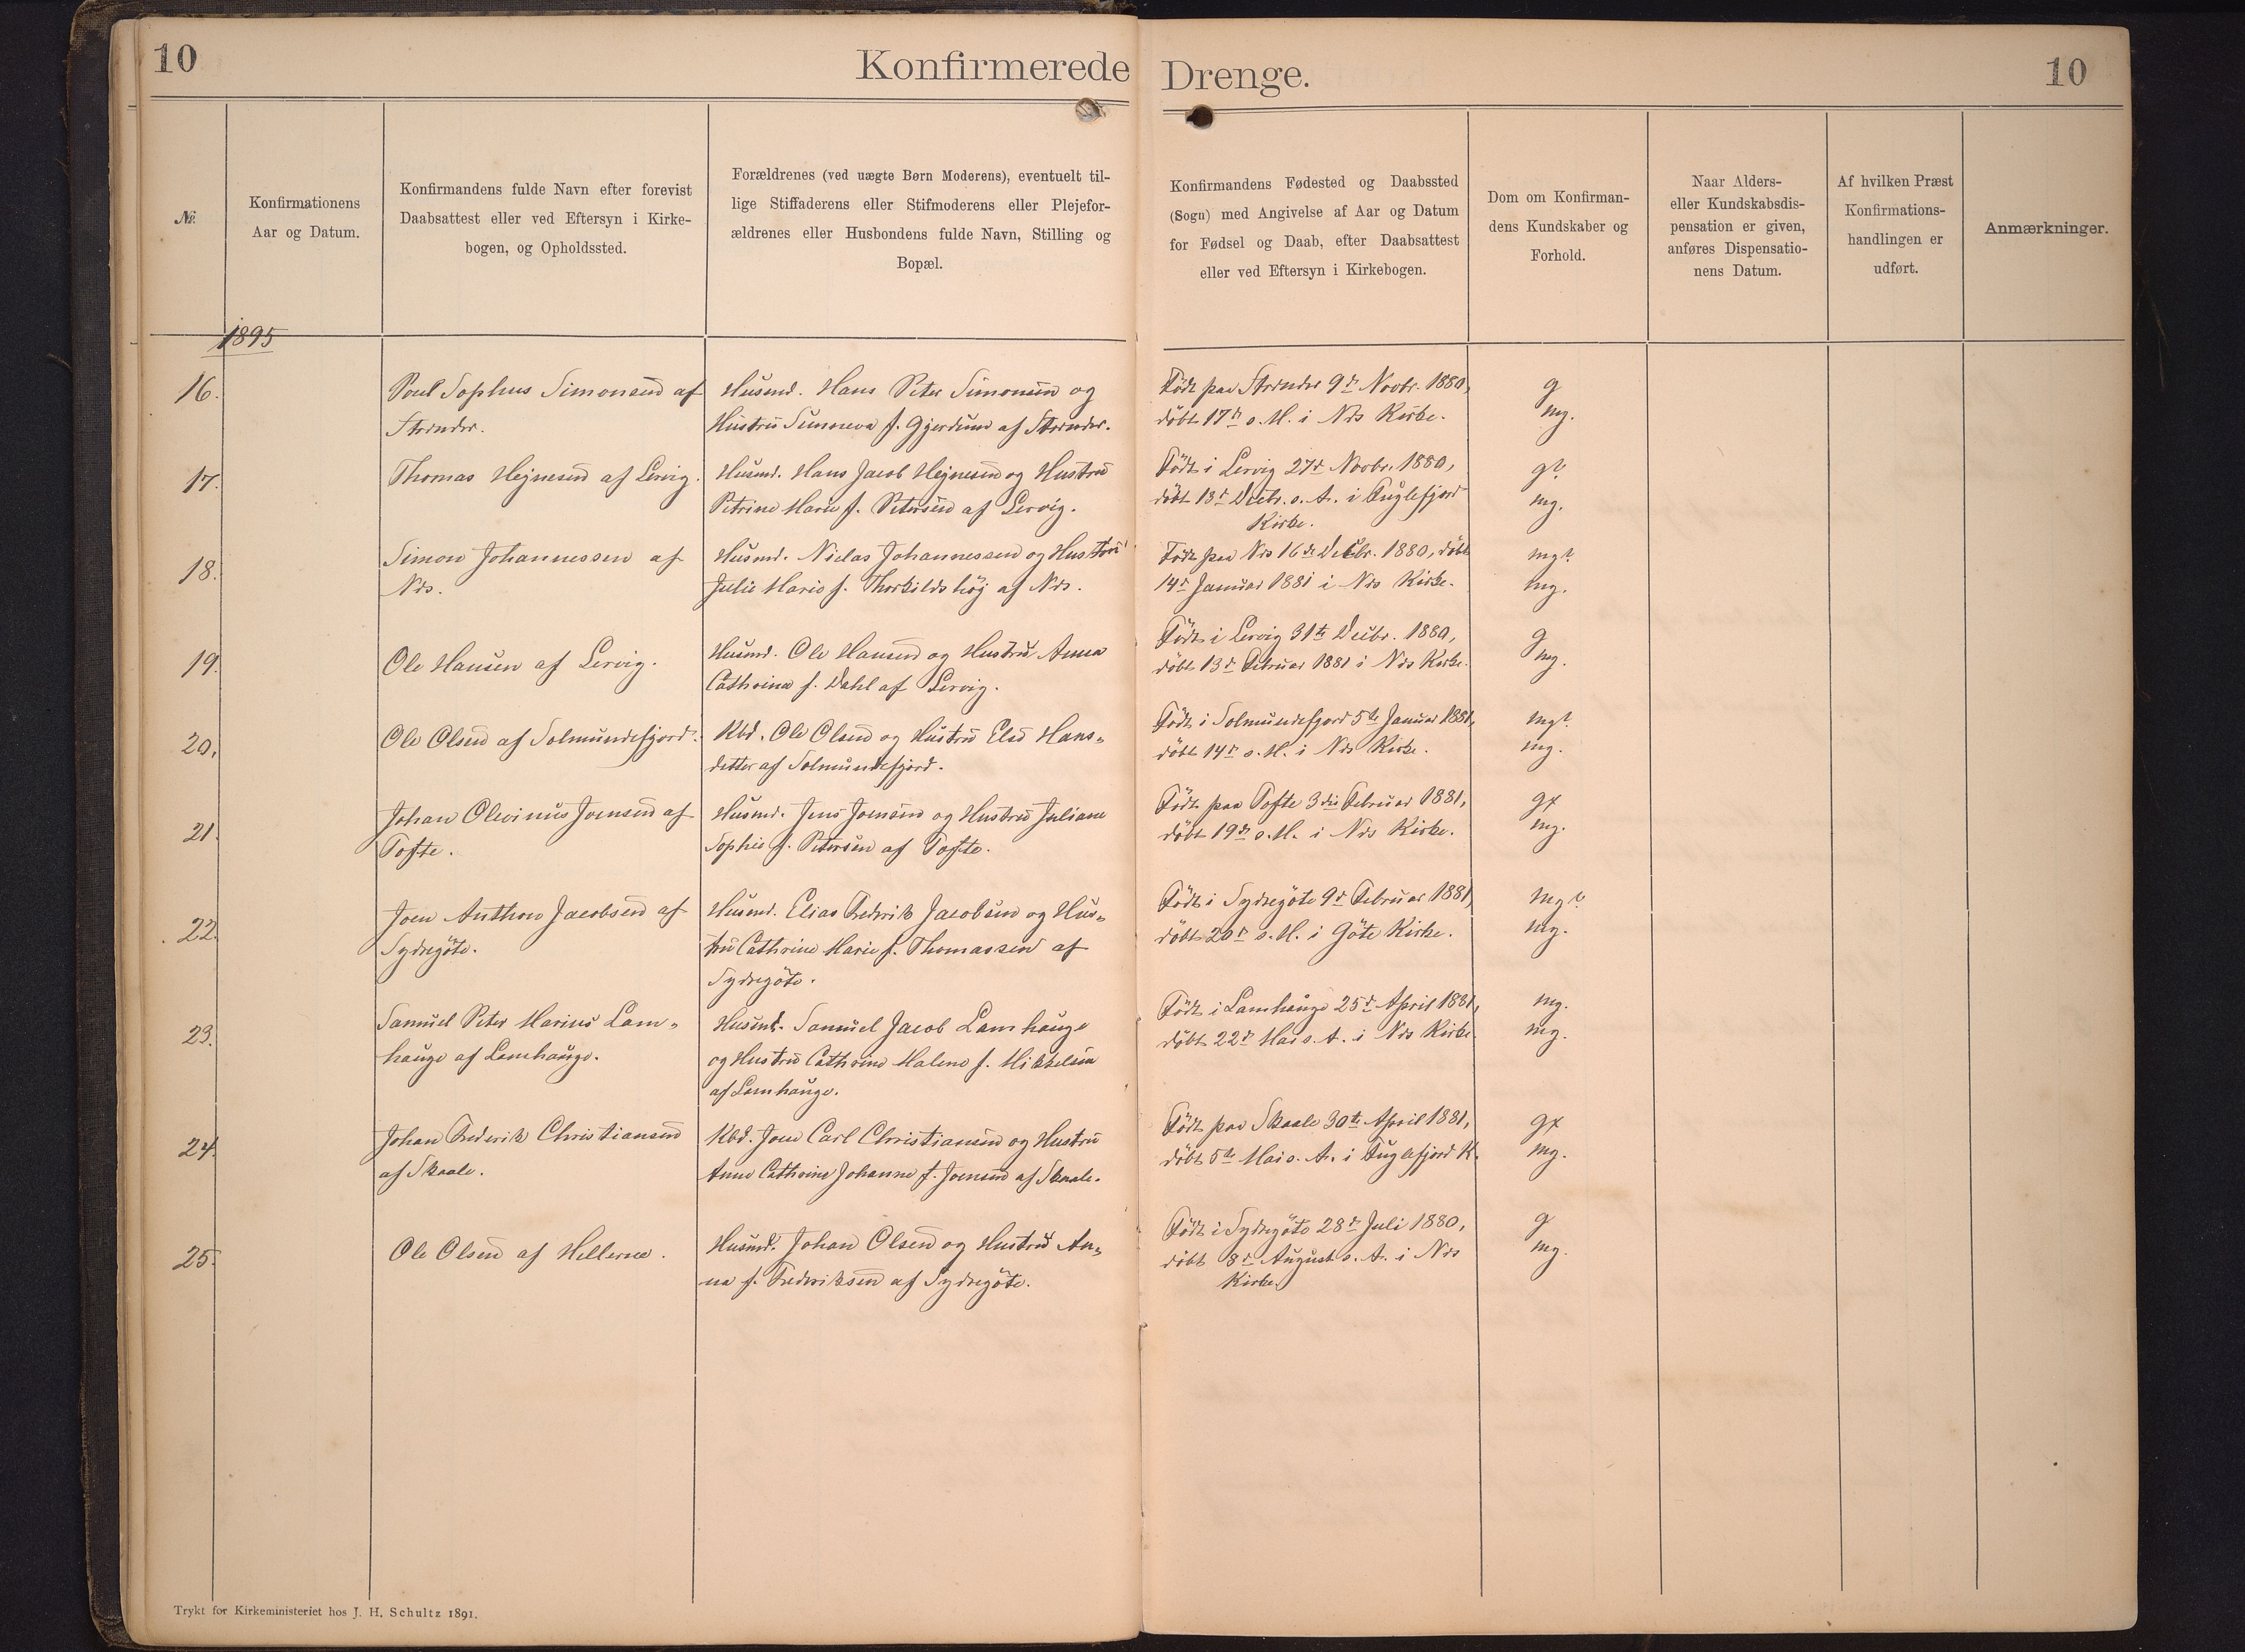 10
Konfirmerede Drenge.
10
№.
Konfirmationens
Aar og Datum.
Konfirmandens fulde Navn efter forevist
Daabsattest eller ved Eftersyn i Kirke-
bogen, og Opholdssted.
Forældrenes (ved uægte Børn Moderens), eventuelt til-
lige Stiffaderens eller Stifmoderens eller Plejefor-
ældrenes eller Husbondens fulde Navn, Stilling og
Bopæl.
Konfirmandens Fødested og Daabssted
(Sogn) med Angivelse af Aar og Datum
for Fødsel og Daab, efter Daabsattest
eller ved Eftersyn i Kirkebogen.
Dom om Konfirman-
dens Kundskaber og
Forhold.
Naar Alders-
eller Kundskabsdis-
pensation er given,
anføres Dispensatio-
nens Datum.
Af hvilken Præst
Konfirmations-
handlingen er
udført.
Anmærkninger.
1895
16.
Poul Sophus Simonsen af
Strender.
Husmd. Hans Peter Simonsen og
Hustru Sunneva f. Gjerdum af Strender.
Født paa Strender 9de Novbr. 1880,
døbt 17de s. M. i Nes Kirke.
g
mg.
17.
Thomas Hejnesen af Lervig.
Husmd. Hans Jacob Hejnesen og Hustru
Petrine Marie f. Petersen af Lervig.
Født i Lervig 27de Novbr. 1880,
døbt 13de Decbr. s. A. i Fuglefjord
Kirke.
g?
mg.
18.
Simon Johannessen af
Nes.
Husmd. Niclas Johannessen og Hustru
Julie Marie f. Thorkildshøj af Nes.
Født paa Nes 16de Decbr. 1880, døbt
14de Januar 1881 i Nes Kirke.
mg?
mg.
19.
Ole Hansen af Lervig.
Husmd. Ole Hansen og Hustru Anna
Cathrina f. Dahl af Lervig.
Født i Lervig 31te Decbr. 1880,
døbt 13de Februar 1881 i Nes Kirke.
g
mg.
20.
Ole Olsen af Solmundefjord.
Kbd. Ole Olsen og Hustru Else Hans-
datter af Solmundefjord.
Født i Solmundefjord 5te Januar 1881,
døbt 14de s. M. i Nes Kirke.
mg?
mg.
21.
Johan Olevinus Joensen af
Tofte.
Husmd. Jens Joensen og Hustru Juliane
Sophie f. Petersen af Tofte.
Født paa Tofte 3die Februar 1881,
døbt 19de s. M. i Nes Kirke.
gx
mg.
22.
Joen Anthon Jacobsen af
Sydregöte.
Husmd. Elias Frederik Jacobsen og Hus-
tru Cathrine Marie f. Thomassen af
Sydregöte.
Født i Sydregöte 9de Februar 1881,
døbt 20de s. M. i Göte Kirke.
mg?
mg.
23.
Samuel Peter Marius Lam-
hauge af Lamhauge.
Husmd. Samuel Jacob Lamhauge
og Hustru Cathrine Malene f. Mikkelsen
af Lamhauge.
Født i Lamhauge 25de April 1881,
døbt 22de Mai s. A. i Nes Kirke.
mg.
mg.
24.
Johan Frederik Christiansen
af Skaale.
Kbd. Joen Carl Christiansen og Hustru
Anne Cathrine Johanne f. Joensen af Skaale.
Født paa Skaale 30te April 1881,
døbt 5te Mai s. A. i Fuglefjord K.
gx
mg.
25.
Ole Olsen af Hellerne.
Husmd. Johan Olsen og Hustru An-
na f. Frederiksen af Sydregöte.
Født i Sydregöte 28de Juli 1880,
døbt 8de August s. A. i Nes
Kirke.
g
mg.
Trykt for Kirkeministeriet hos J. H. Schultz 1891.